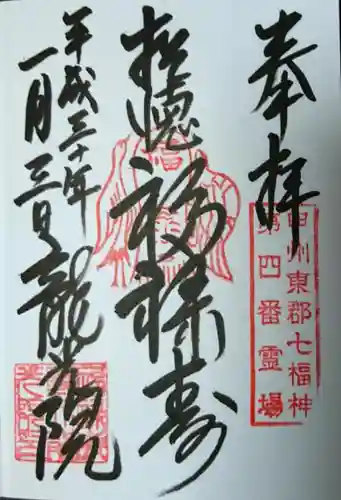 奉拝
甲州東郡七福神
第四番霊場
福禄寿
平成三十年
一月三日
龍光院